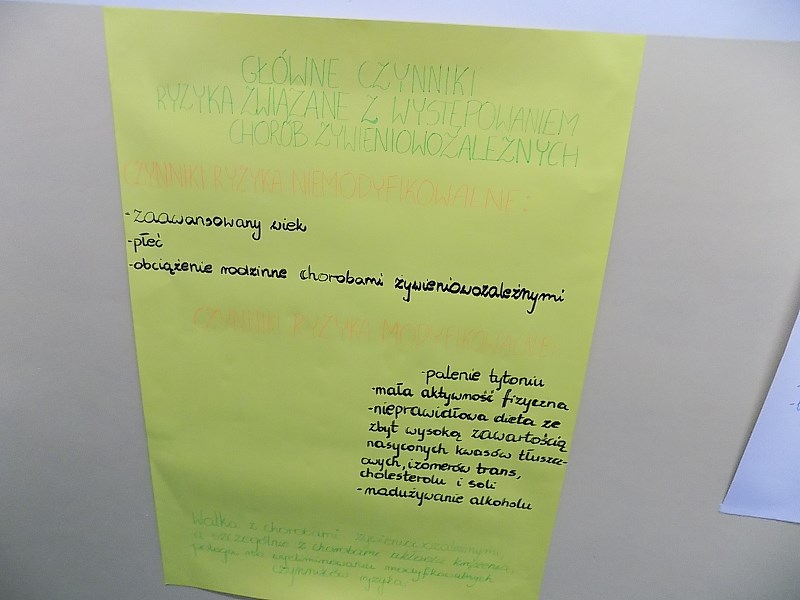 GŁÓWNE CZYNNIKI
RYZYKA ZWIĄZANE Z WYSTĘPOWANIEM
CHORÓB ŻYWIENIOWOZALEŻNYCH
CZYNNIKI RYZYKA NIEMODYFIKOWALNE:
-zaawansowany wiek
-płeć
-obciążenie rodzinne chorobami żywieniowozależnymi
CZYNNIKI RYZYKA MODYFIKOWALNE:
-palenie tytoniu
-mała aktywność fizyczna
-nieprawidłowa dieta ze
zbyt wysoką zawartością
nasyconych kwasów tłuszcz-
owych, izomerów trans,
cholesterolu i soli
-nadużywanie alkoholu
Walka z chorobami żywieniowozależnymi,
a szczególnie z chorobami układu krążenia,
polega na wyeliminowaniu modyfikowalnych
czynników ryzyka.